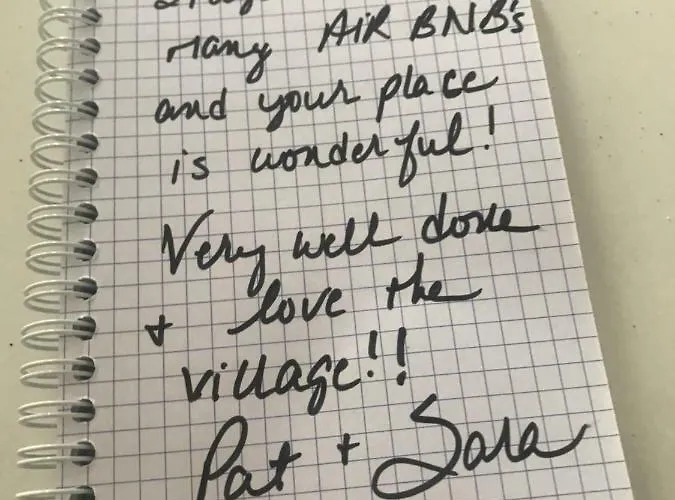 many AIR BNB's
and your place
is wonderful!
Very well done
+ love the
village!!
Pat + Sara